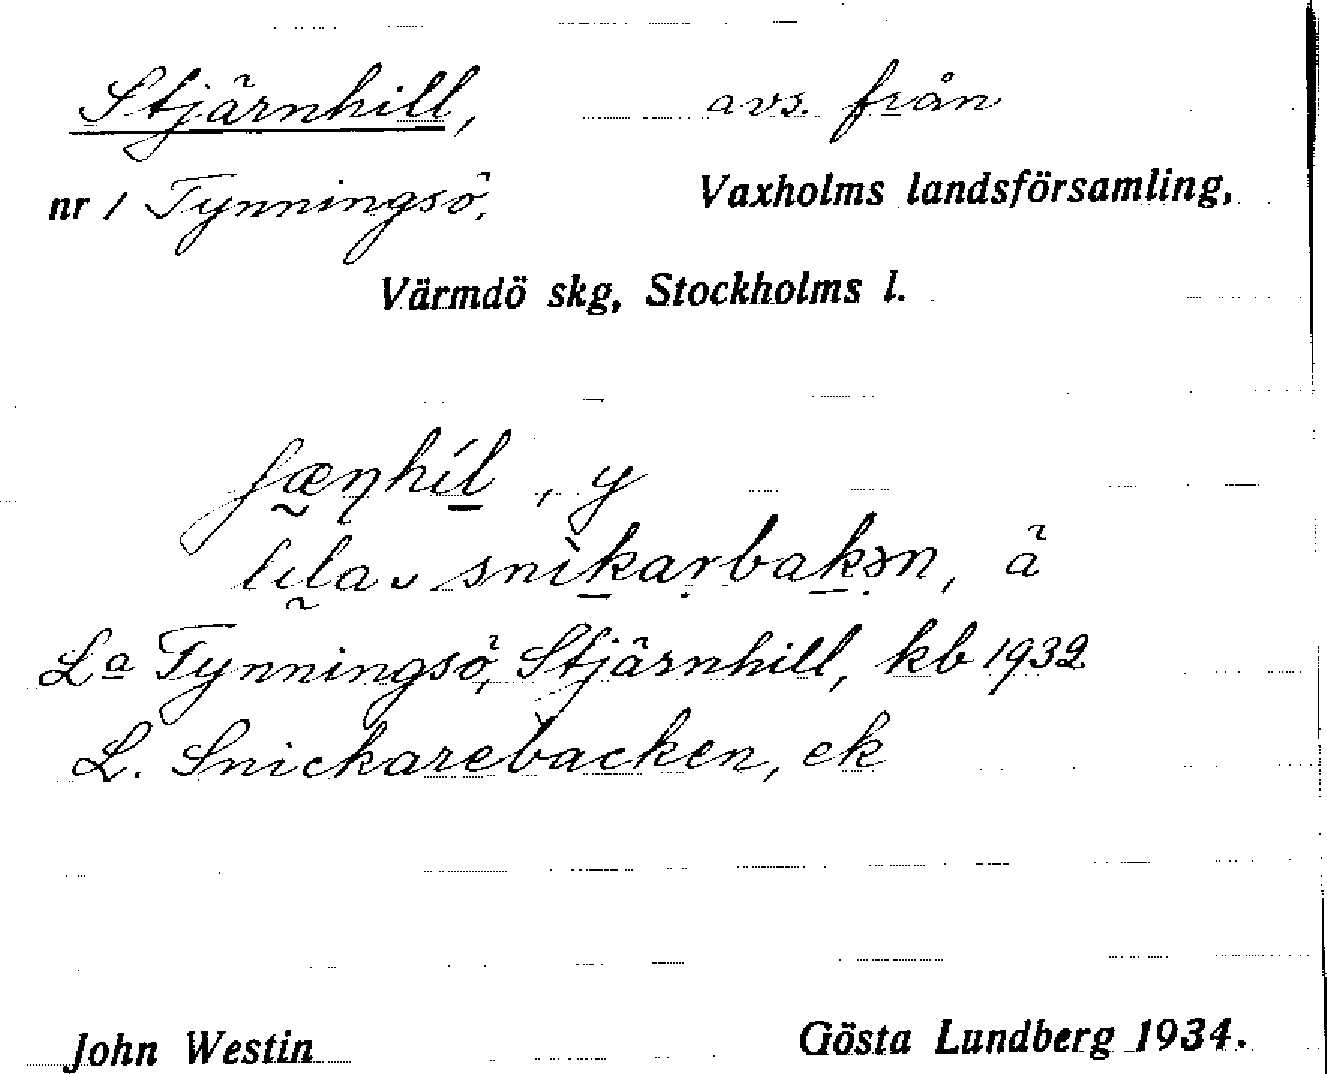 Stjärnhill, avs. från
nr 1 Tynningsö, Vaxholms landsförsamling,
Värmdö skg, Stockholms l.
, y
snikarbakən, ä
La Tynningsö, Stjärnhill, kb 1932
L. Snickarebacken, ek
John Westin Gösta Lundberg 1934.